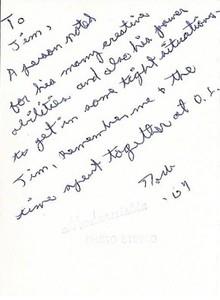 To
Jim,
A person noted
for his many creative
abilities and also his power
to get in some tight situations.
Jim, remember me & the
time spent together at O.I.
'69
PHOTO STUDIO